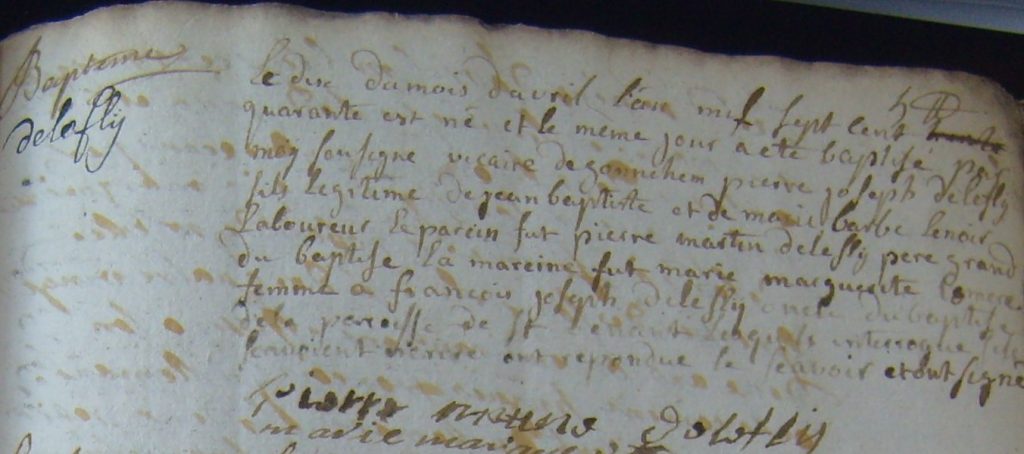 Bapteme
delefly
Le dix du mois davril l'an mil sept cent trente
quarante est né et le meme jour a ete baptisé par
moy sousigne vicaire de gonnehem pierre joseph delefly
fils legitime de jean baptiste et de marie barbe lenoir
Laboureur Le parein fut pierre martin delefly pere grand
du baptise La mareine fut marie marguerite
femme a francois joseph delefly oncle du baptise
de la paroisse de st venant lesquels interroque sils
scavoient ecrire ont repondue le scavoir et ont signé
Pierre martin deleflij
marie